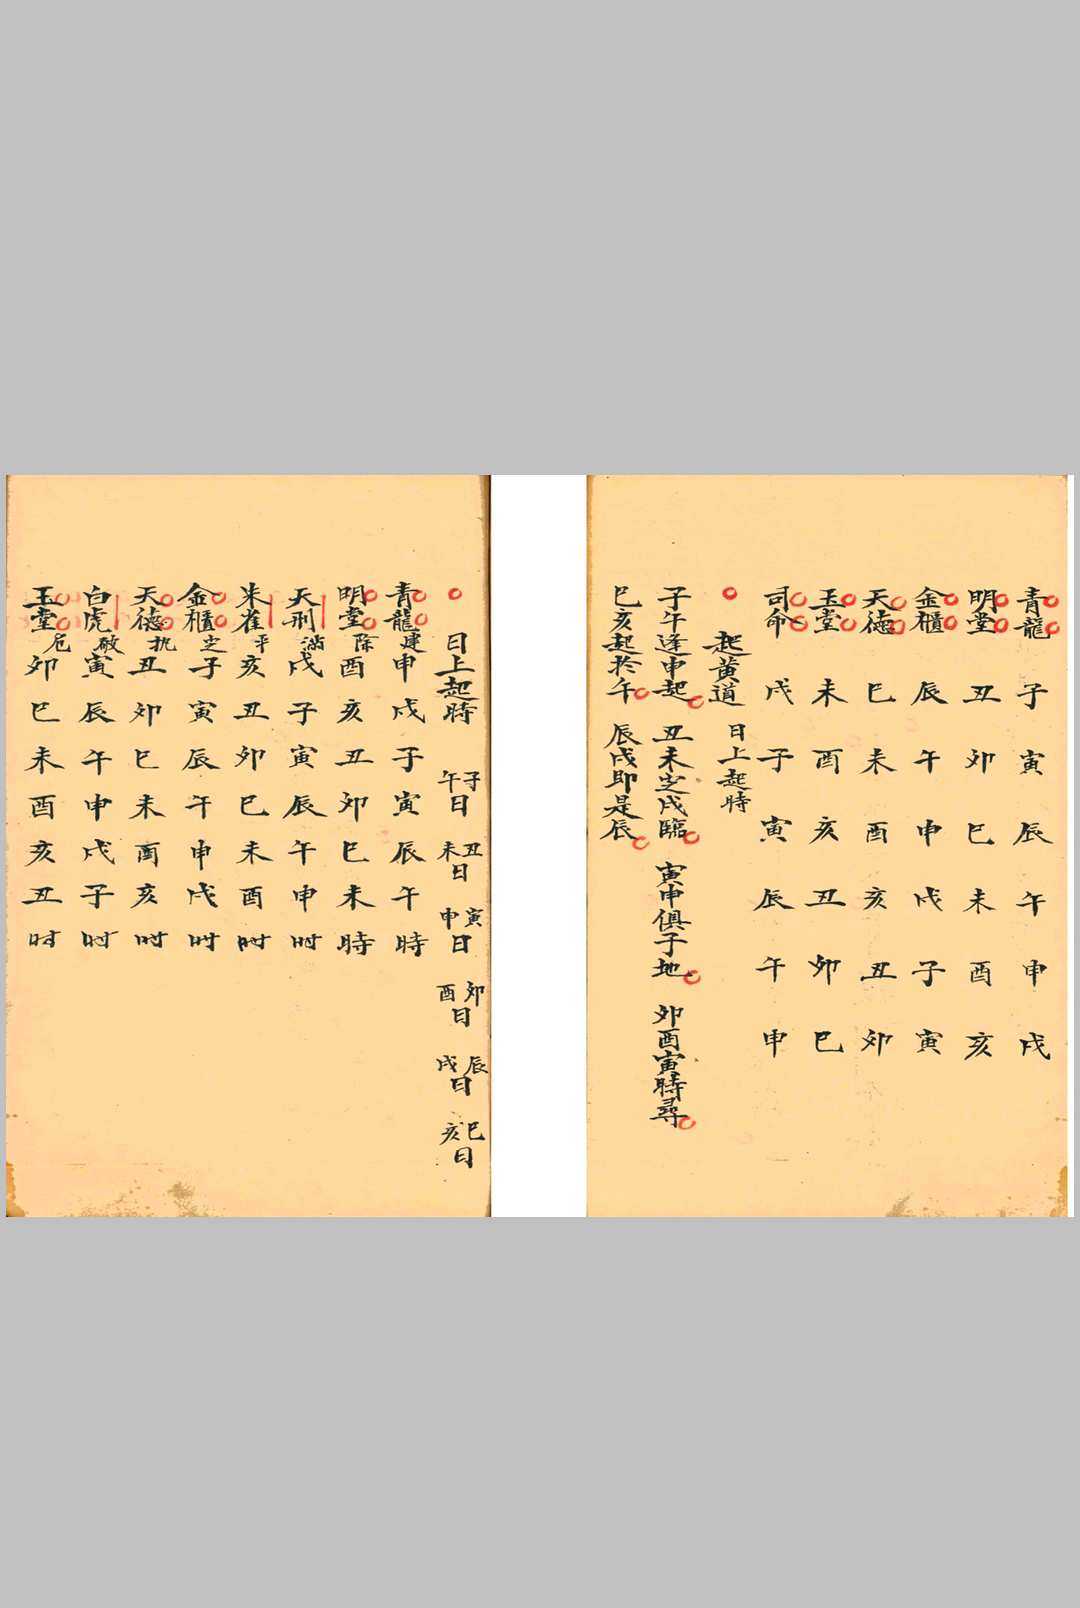 青龍 子 寅 辰 午 申 戌
明堂 丑 卯 巳 未 酉 亥
金櫃 辰 午 申 戌 子 寅
天德 巳 未 酉 亥 丑 卯
玉堂 未 酉 亥 丑 卯 巳
司命 戌 子 寅 辰 午 申
起黃道 日上起時
子午逢申起 丑未定戌臨 寅申俱子地 卯酉寅時尋
巳亥起於午 辰戌即是辰
日上起時 子午日 丑未日 寅申日 卯酉日 辰戌日 巳亥日
青龍建 申 戌 子 寅 辰 午 時
明堂除 酉 亥 丑 卯 巳 未 時
天刑滿 戌 子 寅 辰 午 申 时
朱雀平 亥 丑 卯 巳 未 酉 时
金櫃定 子 寅 辰 午 申 戌 时
天德执 丑 卯 巳 未 酉 亥 时
白虎破 寅 辰 午 申 戌 子 时
玉堂危 卯 巳 未 酉 亥 丑 时